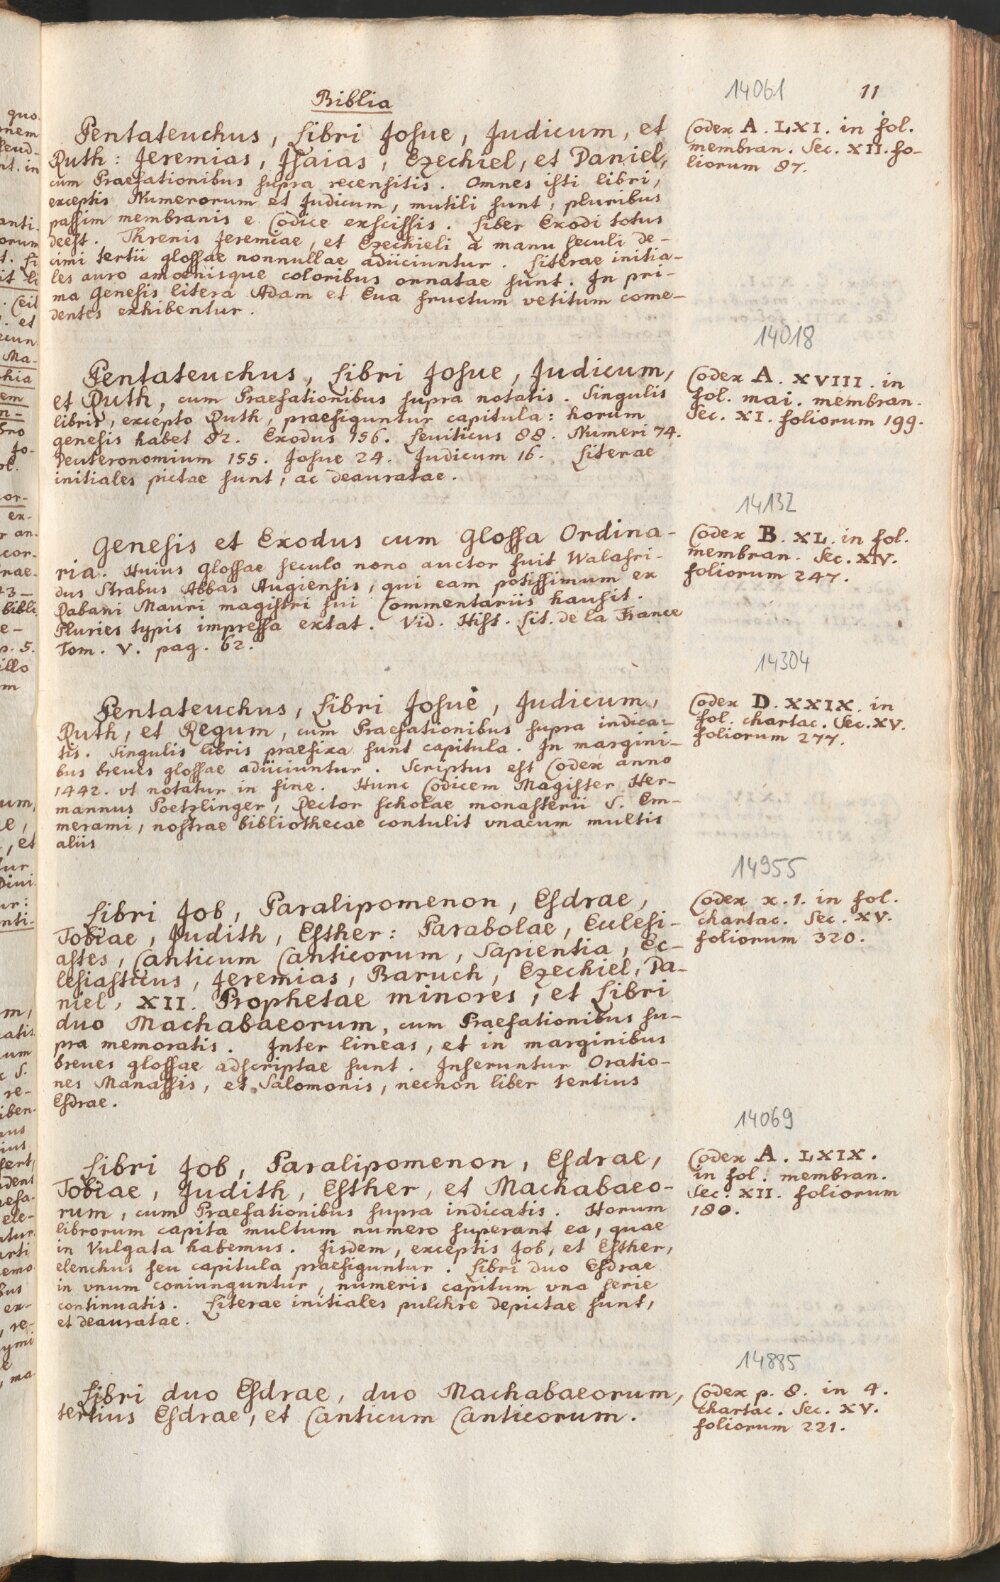 Biblia
11
14061
Pentateuchus, Libri Josue, Judicum, et
Ruth: Jeremias, Isaias, Ezechiel, et Daniel,
cum Praefationibus supra recensitis. Omnes isti libri,
exceptis Numerorum et Judicum, mutili sunt, pluribus
passim membranis e Codice exscissis. Liber Exodi totus
deest. Threnis Jeremiae, et Ezechieli a manu seculi de-
cimi tertii glossae nonnullae adiiciuntur. Literae initia-
les auro amoenisque coloribus ornatae sunt. In pri-
ma Genesis litera Adam et Eua fructum vetitum come-
dentes exhibentur.
Codex A. LXI. in fol.
membran. Sec. XII. fo-
liorum 87.
14018
Pentateuchus, Libri Josue, Judicum,
et Ruth, cum Praefationibus supra notatis. Singulis
libris, excepto Ruth, praefiguntur capitula: horum
genesis habet 82. Exodus 156. Leuiticus 88. Numeri 74.
Deuteronomium 155. Josue 24. Judicum 16. Literae
initiales pictae sunt, ac deauratae.
Codex A. XVIII. in
fol. mai. membran.
Sec. XI. foliorum 199.
14132
Genesis et Exodus cum Glossa Ordina-
ria. Huius glossae seculo nono auctor fuit Walafri-
dus Strabus Abbas Augiensis, qui eam potissimum ex
Rabani Mauri magistri sui Commentariis hausit.
Pluries typis impressa extat. Vid. Hist. Lit. de la France
Tom. V. pag. 62.
Codex B. XL. in fol.
membran. Sec. XIV.
foliorum 247.
14304
Pentateuchus, Libri Josue, Judicum,
Ruth, et Regum, cum Praefationibus supra indica-
tis. Singulis libris praefixa sunt capitula. In margini-
bus breues glossae adiiciuntur. Scriptus est Codex anno
1442. vt notatur in fine. Hunc Codicem Magister Her-
mannus Poetzlinger, Rector scholae monasterii S. Em-
merami, nostrae bibliothecae contulit vnacum multis
aliis
Codex D. XXIX. in
fol. chartac. Sec. XV.
foliorum 277.
14955
Libri Job, Paralipomenon, Esdrae,
Tobiae, Judith, Esther: Parabolae, Eclesi-
astes, Canticum Canticorum, Sapientia, Ec-
lesiasticus, Jeremias, Baruch, Ezechiel, Da-
niel, XII. Prophetae minores, et Libri
duo Machabaeorum, cum Praefationibus su-
pra memoratis. Inter lineas, et in marginibus
breues glossae adscriptae sunt. Inseruntur Oratio-
nes Manassis, et Salomonis, necnon liber tertius
Esdrae.
Codex x. 1. in fol.
chartac. Sec. XV.
foliorum 320.
14069
Libri Job, Paralipomenon, Esdrae,
Tobiae, Judith, Esther, et Machabaeo-
rum, cum Praefationibus supra indicatis. Horum
librorum capita multum numero superant ea, quae
in Vulgata habemus. Iisdem, exceptis Job, et Esther,
elenchus seu capitula praefiguntur. Libri duo Esdrae
in vnum coniunguntur, numeris capitum vna serie
continuatis. Literae initiales pulchre depictae sunt,
et deauratae.
Codex A. LXIX.
in fol. membran.
Sec. XII. foliorum
180.
14885
Libri duo Esdrae, duo Machabaeorum,
tertius Esdrae, et Canticum Canticorum.
Codex p. 8. in 4.
chartac. Sec. XV.
foliorum 221.